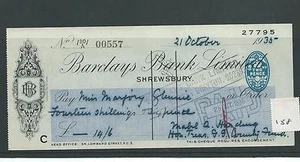 No 1901 C 00557 27795
21 October 1935
Barclays Bank Limited
SHREWSBURY.
Pay Miss Marjory Glennie or Order
Fourteen shillings & sixpence
£ 14/6 Mabel A. Harding
Hon. Treas. County Fund.
C
HEAD OFFICE: 54, LOMBARD STREET, E.C.3. THIS CHEQUE REQUIRES ENDORSEMENT
158